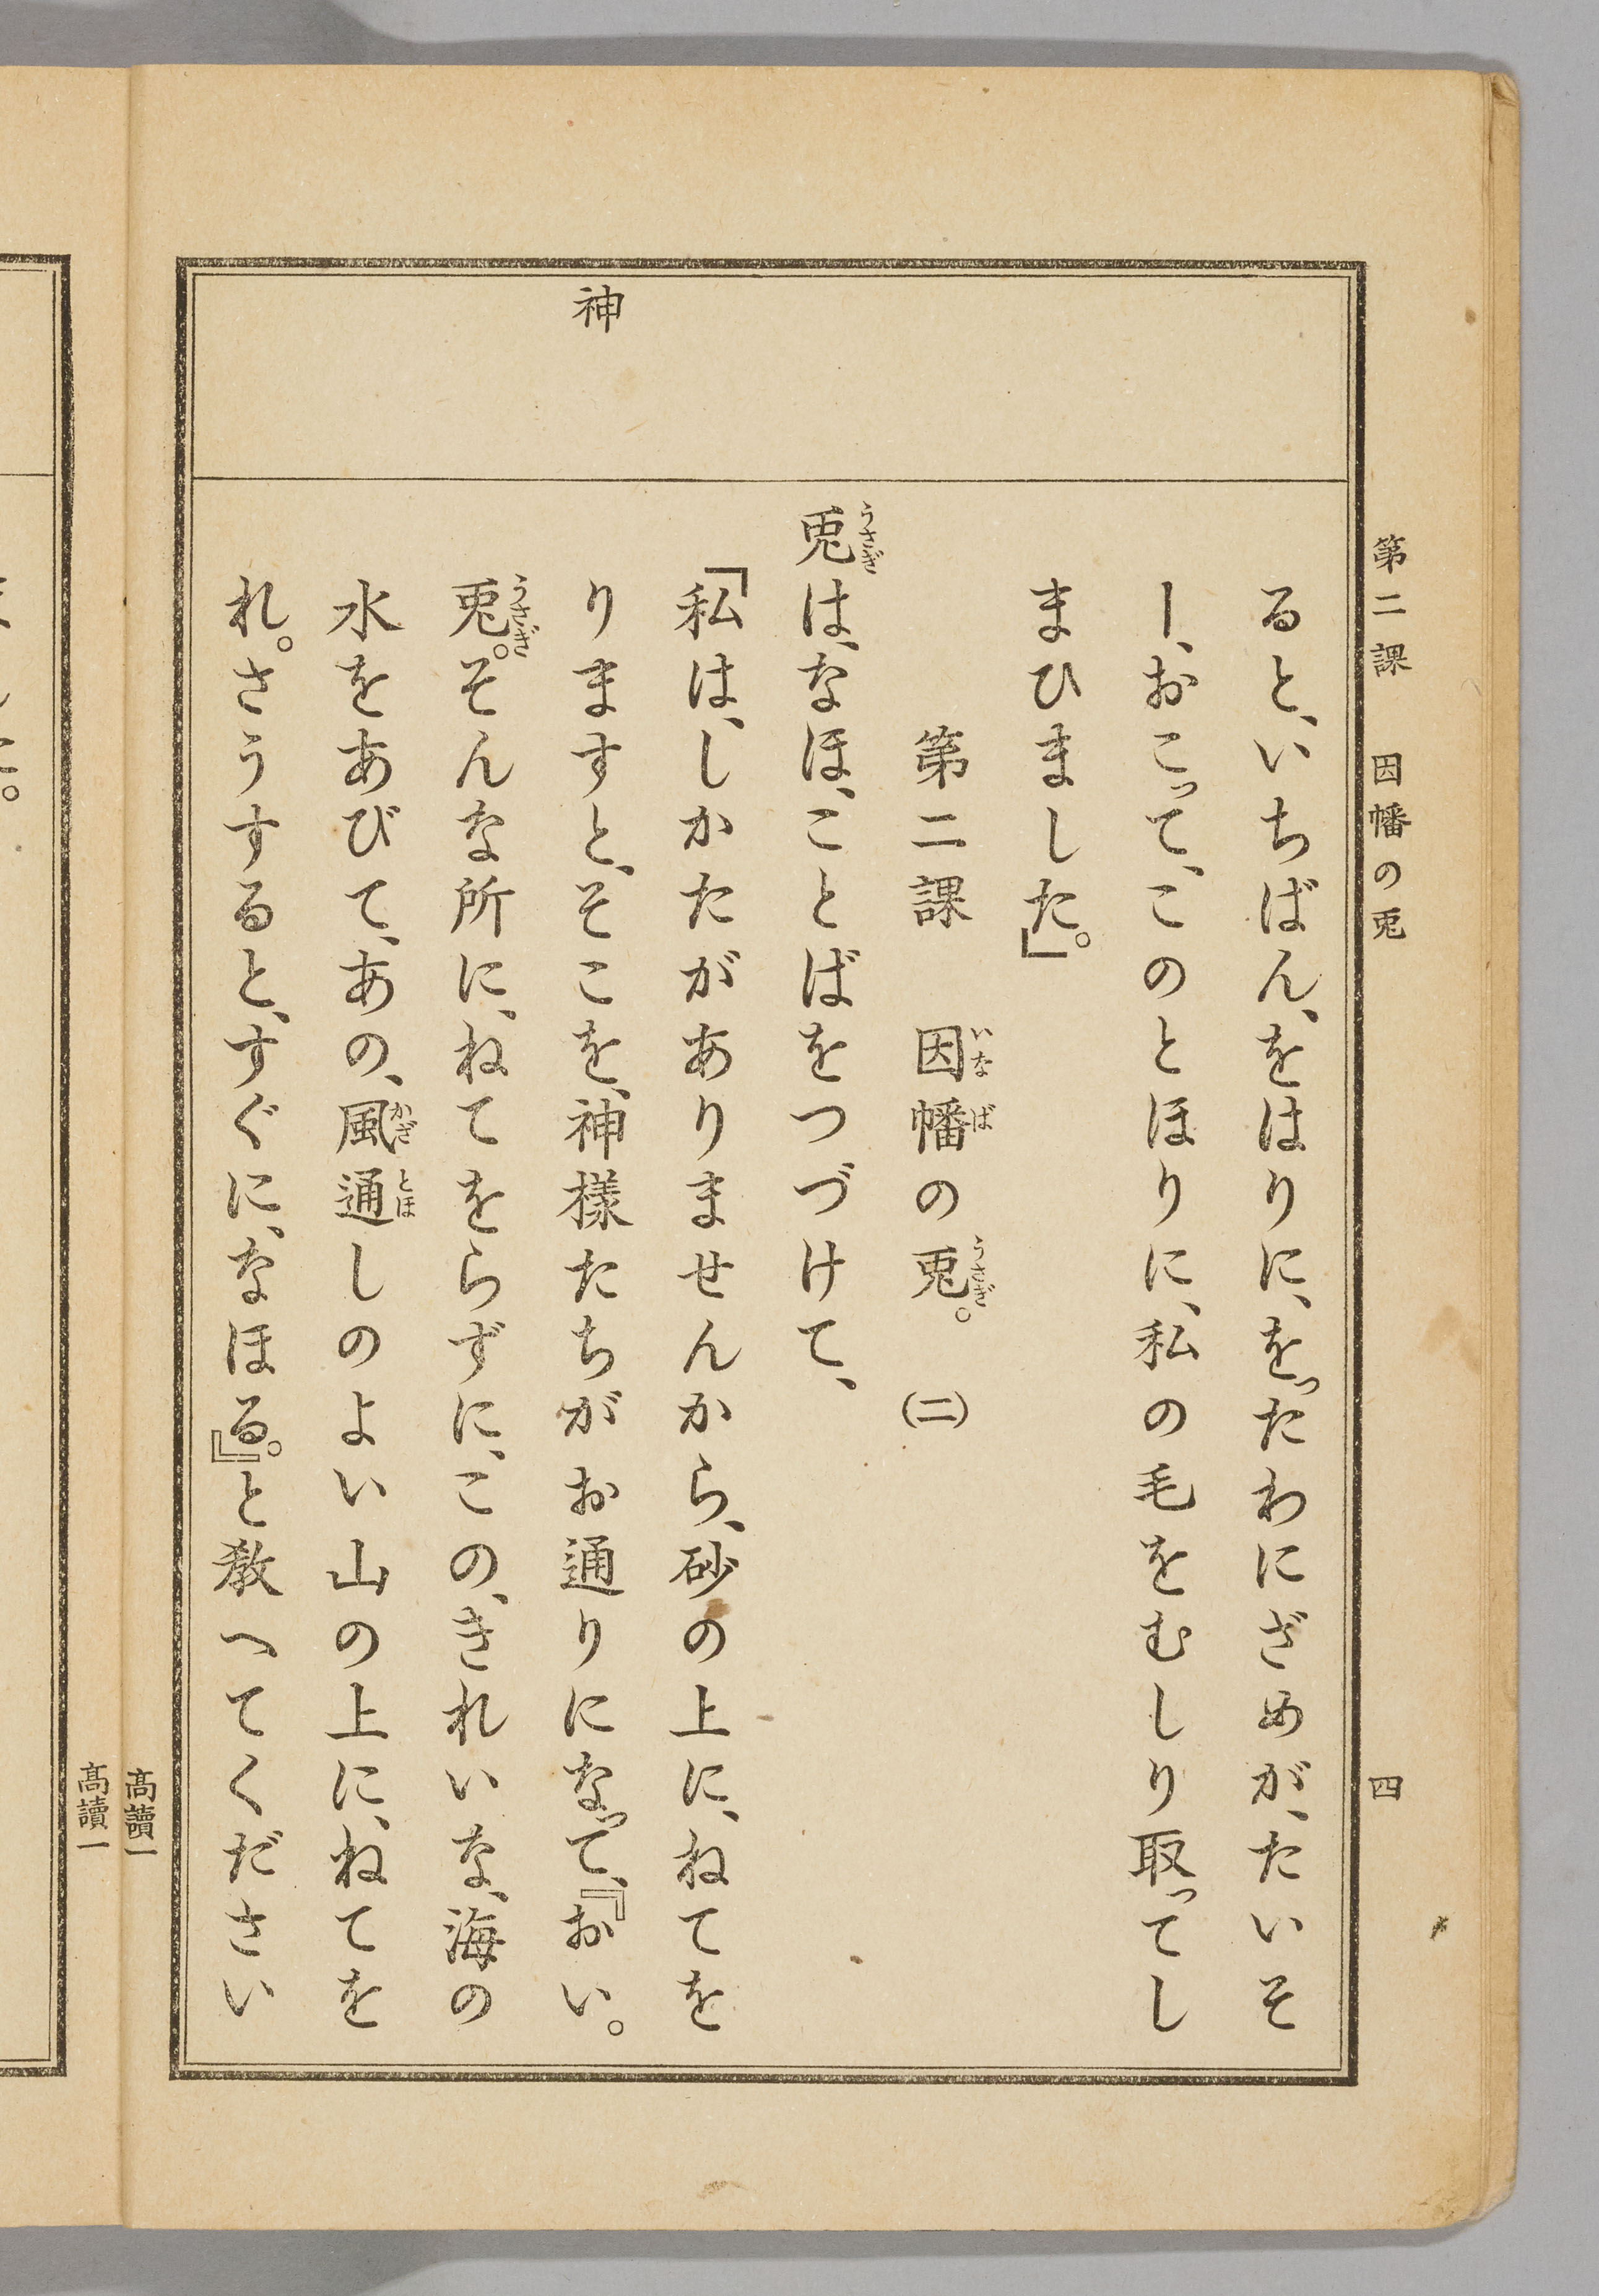 第二課　因幡の兎
四
るといちばん、をはりに、をったわにざめが、たいそ
ー、おこって、このとほりに、私の毛をむしり取ってし
まひました。」
第二課　因幡の兎。㈡
いなば　うさぎ
兎は、なほ、ことばをつづけて、
うさぎ
「私は、しかたがありませんから、砂の上に、ねてを
神
りますと、そこを、神様たちがお通りになって、『おい。
兎。そんな所に、ねてをらずに、この、きれいな、海の
うさぎ
水をあびて、あの、風通しのよい山の上に、ねてを
かぎとほ
れ。さうすると、すぐに、なほる。』と敎へてください
高讀一
高讀一